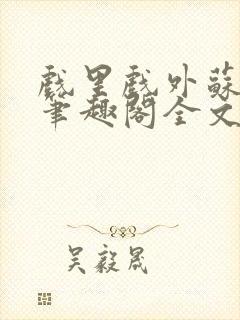 戲里戲外蘇
筆趣閣全文
吴毅晟